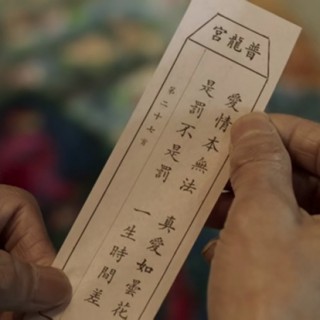 普龍宮
愛情本無法 真愛如曇花
是罰不是罰 一生時間差
第二十七首